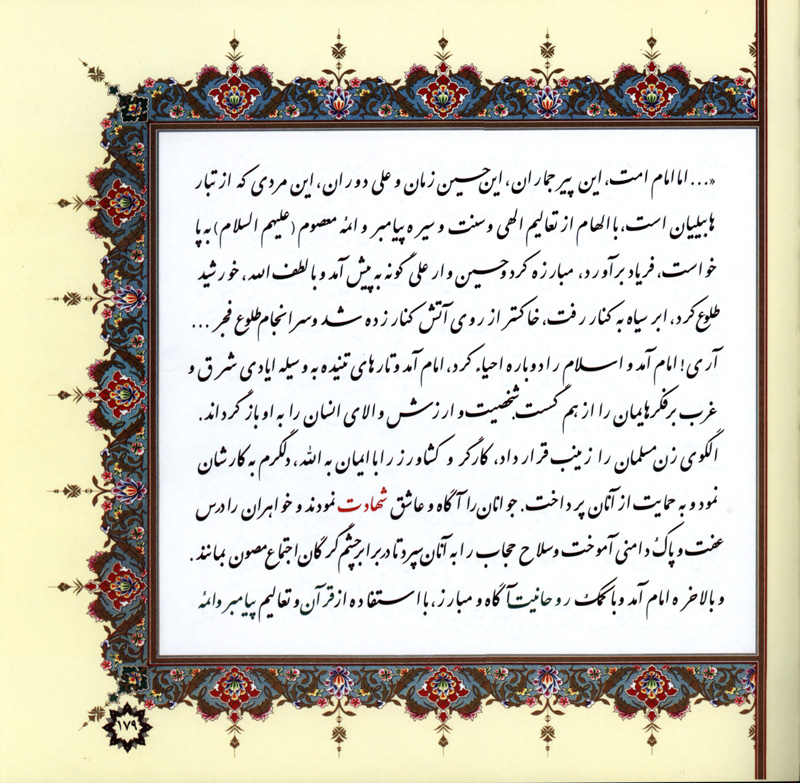 «... اما امام امت، این پیر جماران، این حسین زمان و علی دوران، این مردی که از تبار
هابیلیان است، با الهام از تعالیم الهی و سنت و سیره پیامبر و ائمهٔ معصوم (علیهم السلام) به پا
خواست، فریاد برآورد، مبارزه کرد و حسین وار علی گونه به پیش آمد و با لطف الله، خورشید
طلوع کرد، ابر سیاه به کنار رفت، خاکستر از روی آتش کنار زده شد و سرانجام طلوع فجر ...
آری! امام آمد و اسلام را دوباره احیاء کرد، امام آمد و تارهای تنیده به وسیله ایادی شرق و
غرب بر فکرهایمان را از هم گست شخصیت و ارزش والای انسان را به او باز گرداند.
الگوی زن مسلمان را زینب قرار داد، کارگر و کشاورز را با ایمان به الله، دلگرم به کارشان
نمود و به حمایت از آنان پرداخت. جوانان را آگاه و عاشق شهادت نمودند و خواهران را درس
عفت و پاک دامنی آموخت و سلاح حجاب را به آنان سپرد تا در برابر چشم گرگان اجتماع مصون بمانند.
و بالاخره امام آمد و با کمک روحانیت آگاه و مبارز، با استفاده از قرآن و تعالیم پیامبر و ائمهٔ
۱۷۹